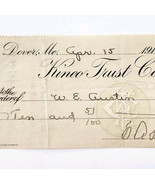 Dover, Me. Apr. 15 191
Kineo Trust Co
to the
order of W. E. Austin
Ten and 51/100